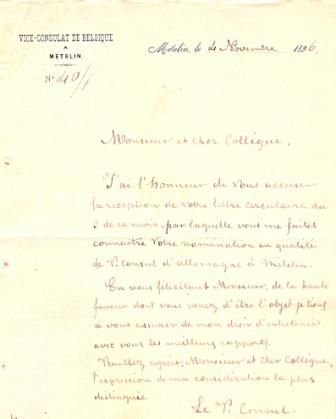 VICE-CONSULAT DE BELGIQUE
A
METELIN.
Nº 40/1
Métélin, le 4 Novembre 1896
Monsieur et Cher Collègue,
J'ai l'honneur de vous accuser
la réception de votre lettre circulaire du
3 de ce mois, par laquelle vous me faites
connaître votre nomination en qualité
de V. Consul d'Allemagne à Métélin.
En vous félicitant Monsieur, de la haute
faveur dont vous venez d'être l'objet je tiens
à vous assurer de mon désir d'entretenir
avec vous les meilleurs rapports.
Veuillez agréer, Monsieur et Cher Collègue,
l'expression de ma considération la plus
distinguée
Le V. Consul